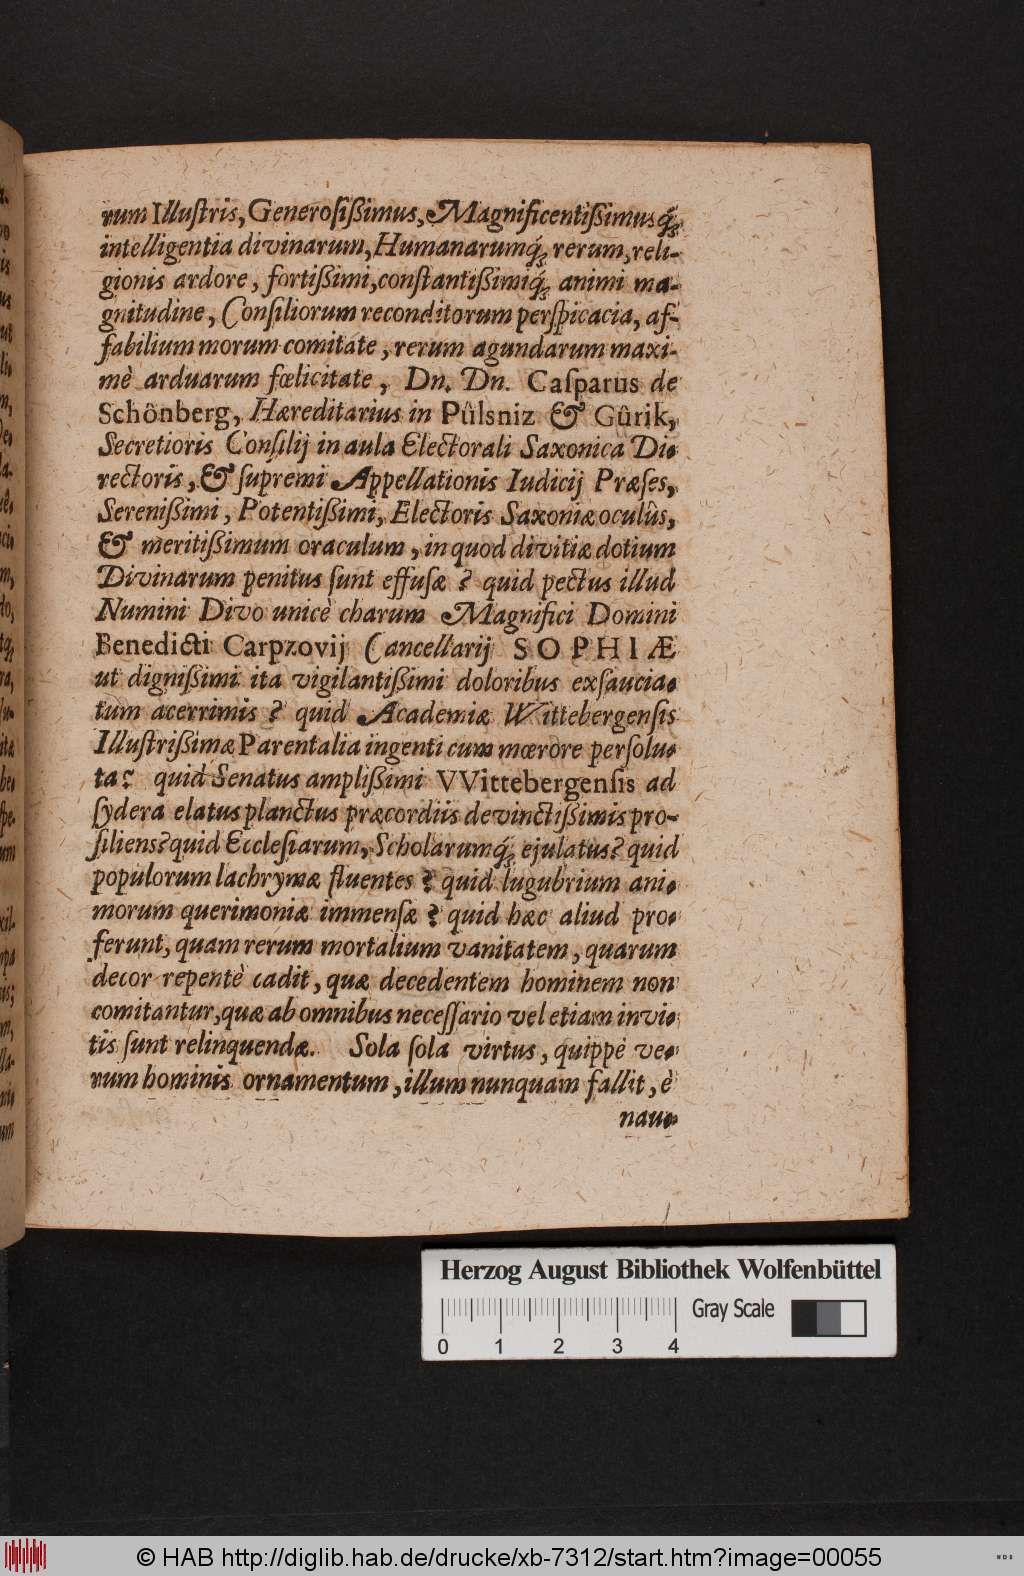 rum Illuſtris, Generoſißimus, Magnificentißimusq́;
intelligentia divinarum, Humanarumq́; rerum, reli-
gionis ardore, fortißimi, conſtantißimiq́; animi ma-
gnitudine, Conſiliorum reconditorum perſpicacia, af-
fabilium morum comitate, rerum agundarum maxi-
mè arduarum fœlicitate, Dn. Dn. Caſparus de
Schônberg, Hæreditarius in Pûlsniz & Gûrik,
Secretioris Conſilij in aula Electorali Saxonica Di-
rectoris, & ſupremi Appellationis Iudicij Præſes,
Serenißimi, Potentißimi, Electoris Saxoniæ oculûs,
& meritißimum oraculum, in quod divitiæ dotium
Divinarum penitus ſunt effuſæ? quid pectus illud
Numini Divo unicè charum Magnifici Domini
Benedicti Carpzovij Cancellarij SOPHIÆ
ut dignißimi ita vigilantißimi doloribus exſaucia-
tum acerrimis? quid Academiæ Wittebergenſis
Illuſtrißimæ Parentalia ingenti cum mœrore perſolu-
ta? quid Senatus amplißimi VVittebergenſis ad
ſydera elatus planctus præcordiis devinctißimis pro-
ſiliens? quid Eccleſiarum, Scholarumq́; ejulatus? quid
populorum lachrymæ fluentes? quid lugubrium ani-
morum querimoniæ immenſæ? quid hæc aliud pro-
ferunt, quam rerum mortalium vanitatem, quarum
decor repentè cadit, quæ decedentem hominem non
comitantur, quæ ab omnibus neceſſario vel etiam invi-
tis ſunt relinquendæ. Sola ſola virtus, quippe ve-
rum hominis ornamentum, illum nunquam fallit, è
nau-
Herzog August Bibliothek Wolfenbüttel
Gray Scale
0 1 2 3 4
© HAB http://diglib.hab.de/drucke/xb-7312/start.htm?image=00055